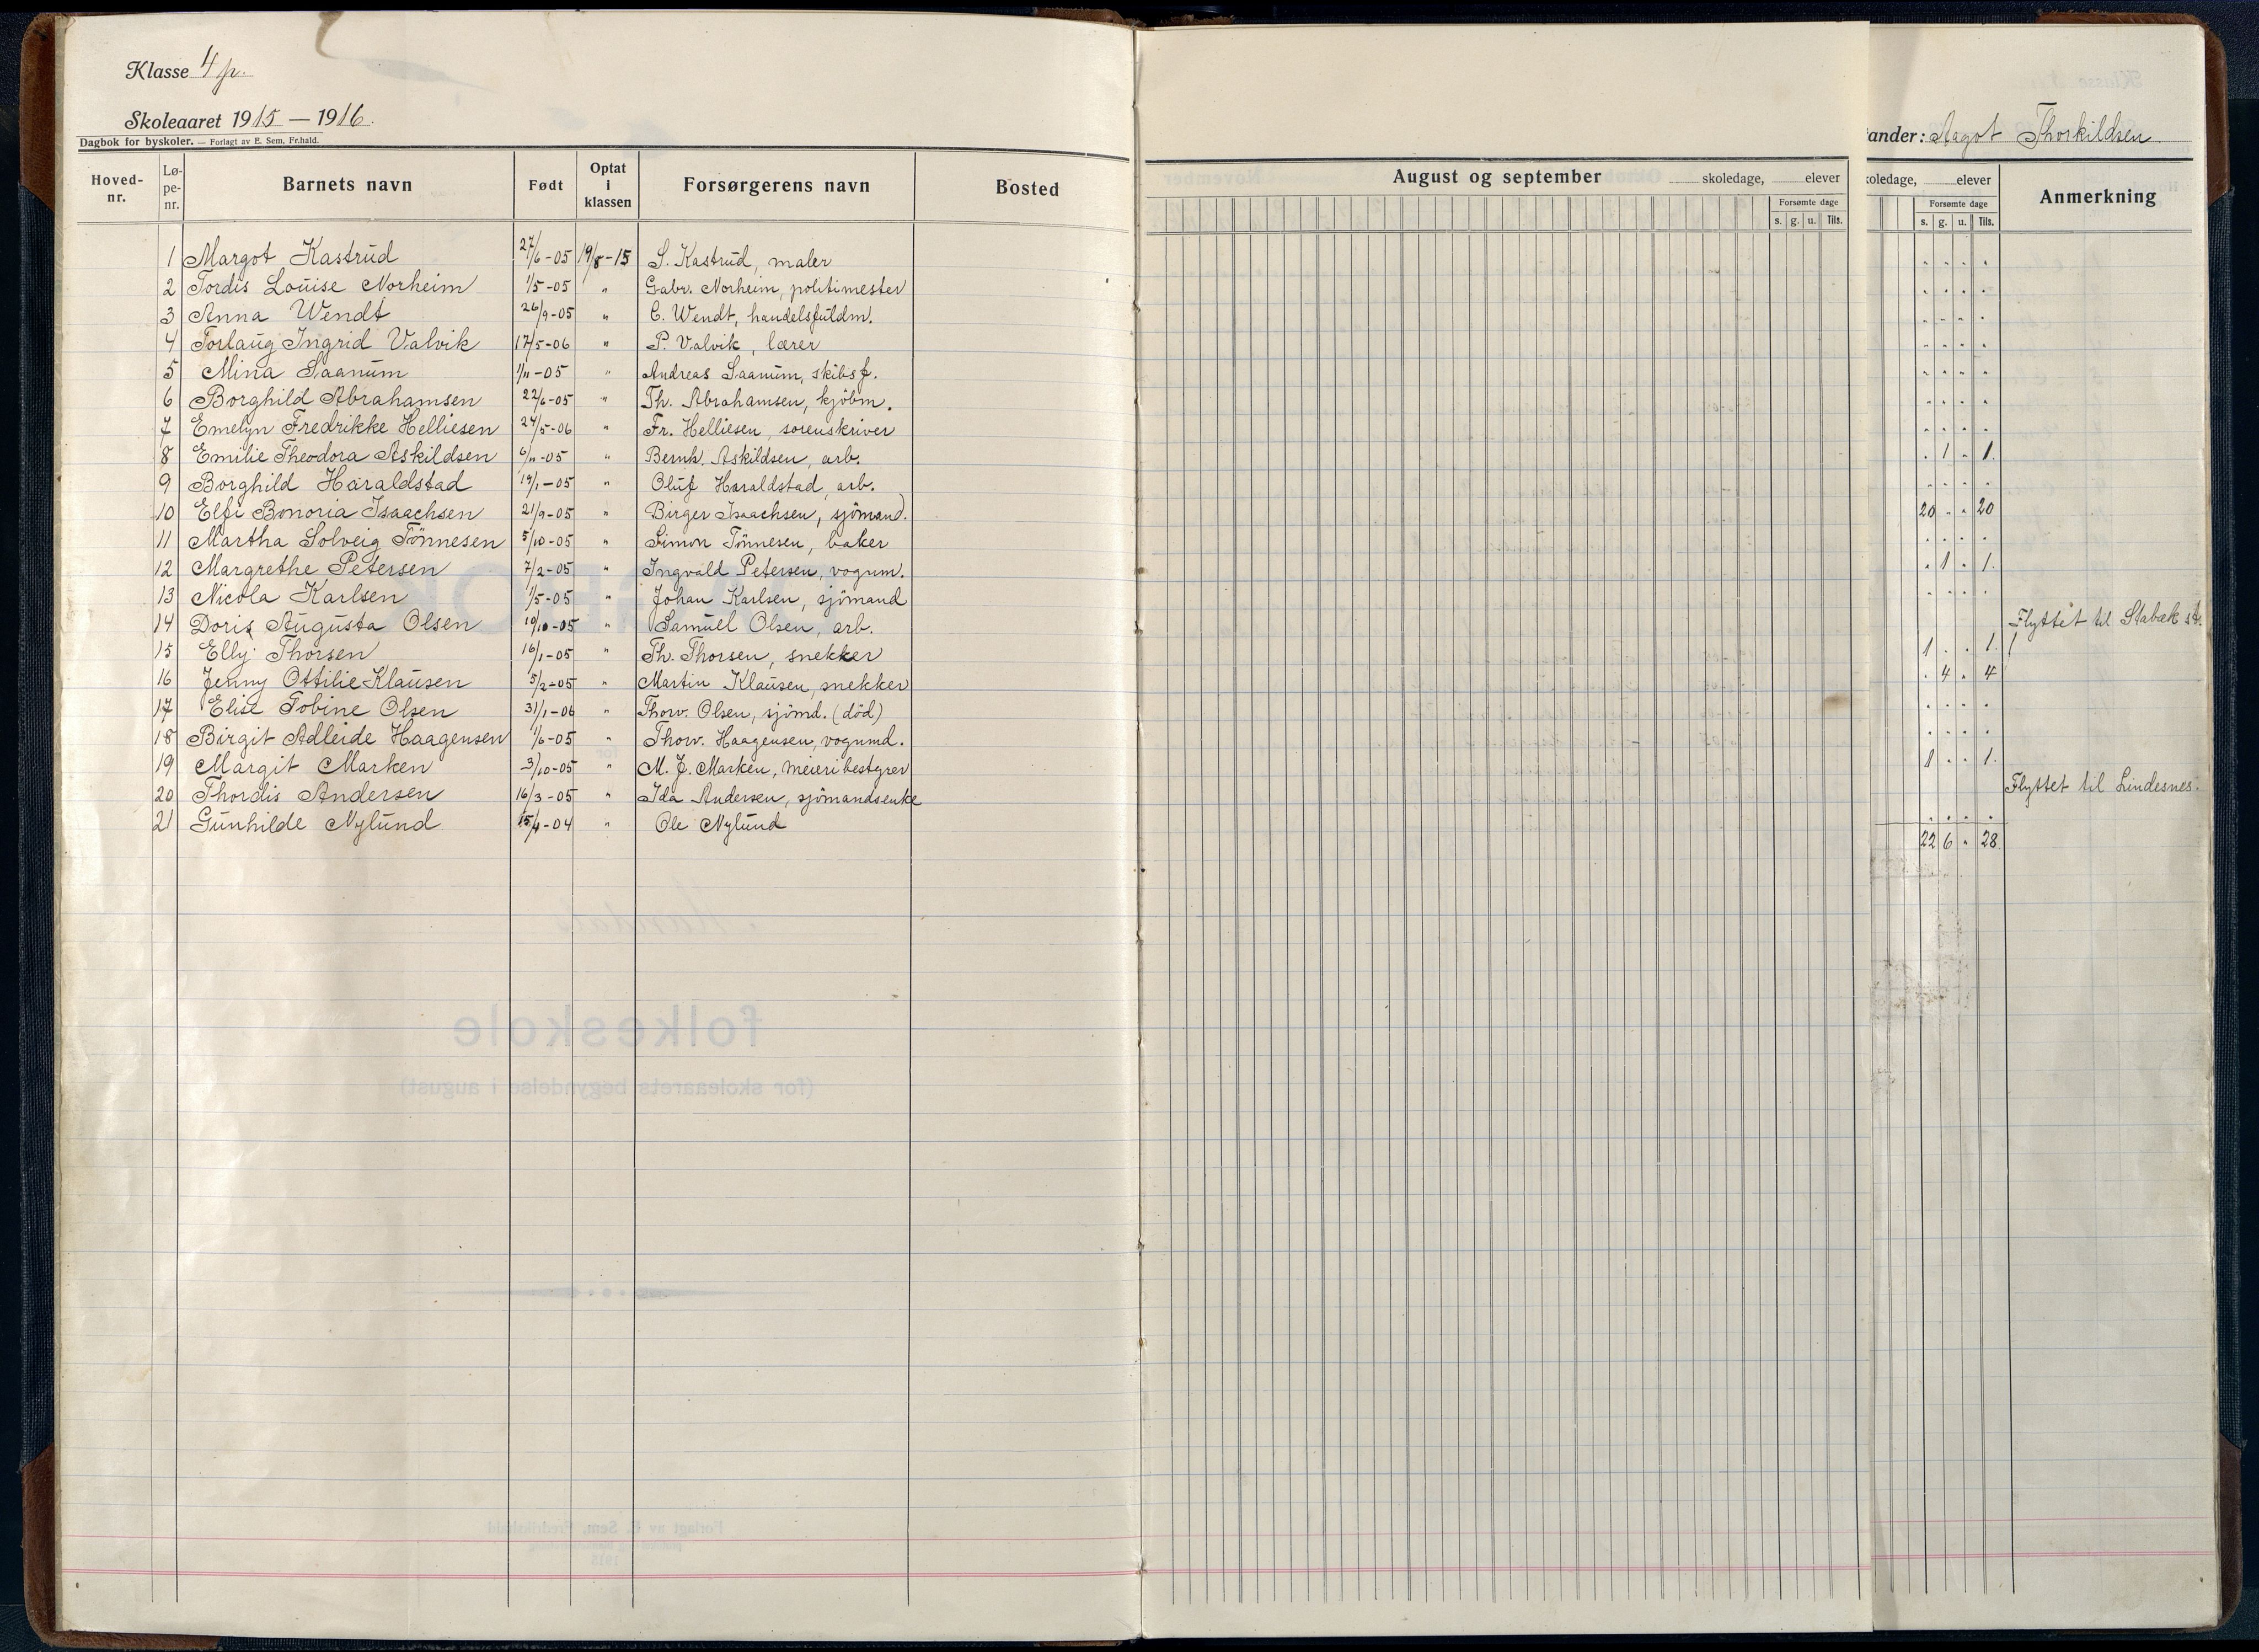 Klasse 4 p.
Skoleaaret 1915 — 1916.
Dagbok for byskoler. — Forlagt av E. Sem, Fr.hald.
Hoved-nr. Lø-pe-nr. Barnets navn Født Optat i klassen Forsørgerens navn Bosted
1 Margot Kastrud 27/6-05 19/8-15 S. Kastrud, maler
2 Tordis Louise Norheim 1/5-05 " Gabr. Norheim, politimester
3 Anna Wendt 26/9-05 " C. Wendt, handelsfuldm.
4 Torlaug Ingrid Valvik 17/5-06 " P. Valvik, lærer
5 Mina Saanum 1/11-05 " Andreas Saanum, skibsf.
6 Borghild Abrahamsen 22/6-05 " Th. Abrahamsen, kjöbm.
7 Emelyn Fredrikke Helliesen 24/5-06 " Fr. Helliesen, sorenskriver
8 Emilie Theodora Askildsen 6/11-05 " Bernh. Askildsen, arb.
9 Borghild Haraldstad 19/1-05 " Oluf Haraldstad, arb.
10 Elfi Bonoria Isaachsen 21/9-05 " Birger Isaachsen, sjömand.
11 Martha Solveig Tönnesen 5/10-05 " Simon Tönnesen, baker
12 Margrethe Petersen 7/2-05 " Ingvald Petersen, vognm.
13 Nicola Karlsen 1/5-05 " Johan Karlsen, sjömand
14 Doris Augusta Olsen 19/10-05 " Samuel Olsen, arb.
15 Elly Thorsen 16/1-05 " Th. Thorsen, snekker
16 Jenny Ottilie Klausen 5/2-05 " Martin Klausen, snekker
17 Elise Tobine Olsen 31/1-06 " Thorv. Olsen, sjömd. (död)
18 Birgit Adleide Haagensen 1/6-05 " Thorv. Haagensen, vognmd.
19 Margit Marken 3/10-05 " M. J. Marken, meieribestyrer
20 Thordis Andersen 16/3-05 " Ida Andersen, sjömandsenke
21 Gunhilde Nylund 15/4-04 " Ole Nylund
August og september skoledage, elever
Forsømte dage
s. g. u. Tils.
ander: Aagot Thorkildsen
koledage, elever Anmerkning
Forsømte dage
s. g. u. Tils.
. 1 . 1.
20 . . 20
. 1 . 1.
Flyttet til Stabæk st.
1 . . 1.
. 4 . 4
1 . . 1.
Flyttet til Lindesnes.
22 6 . 28